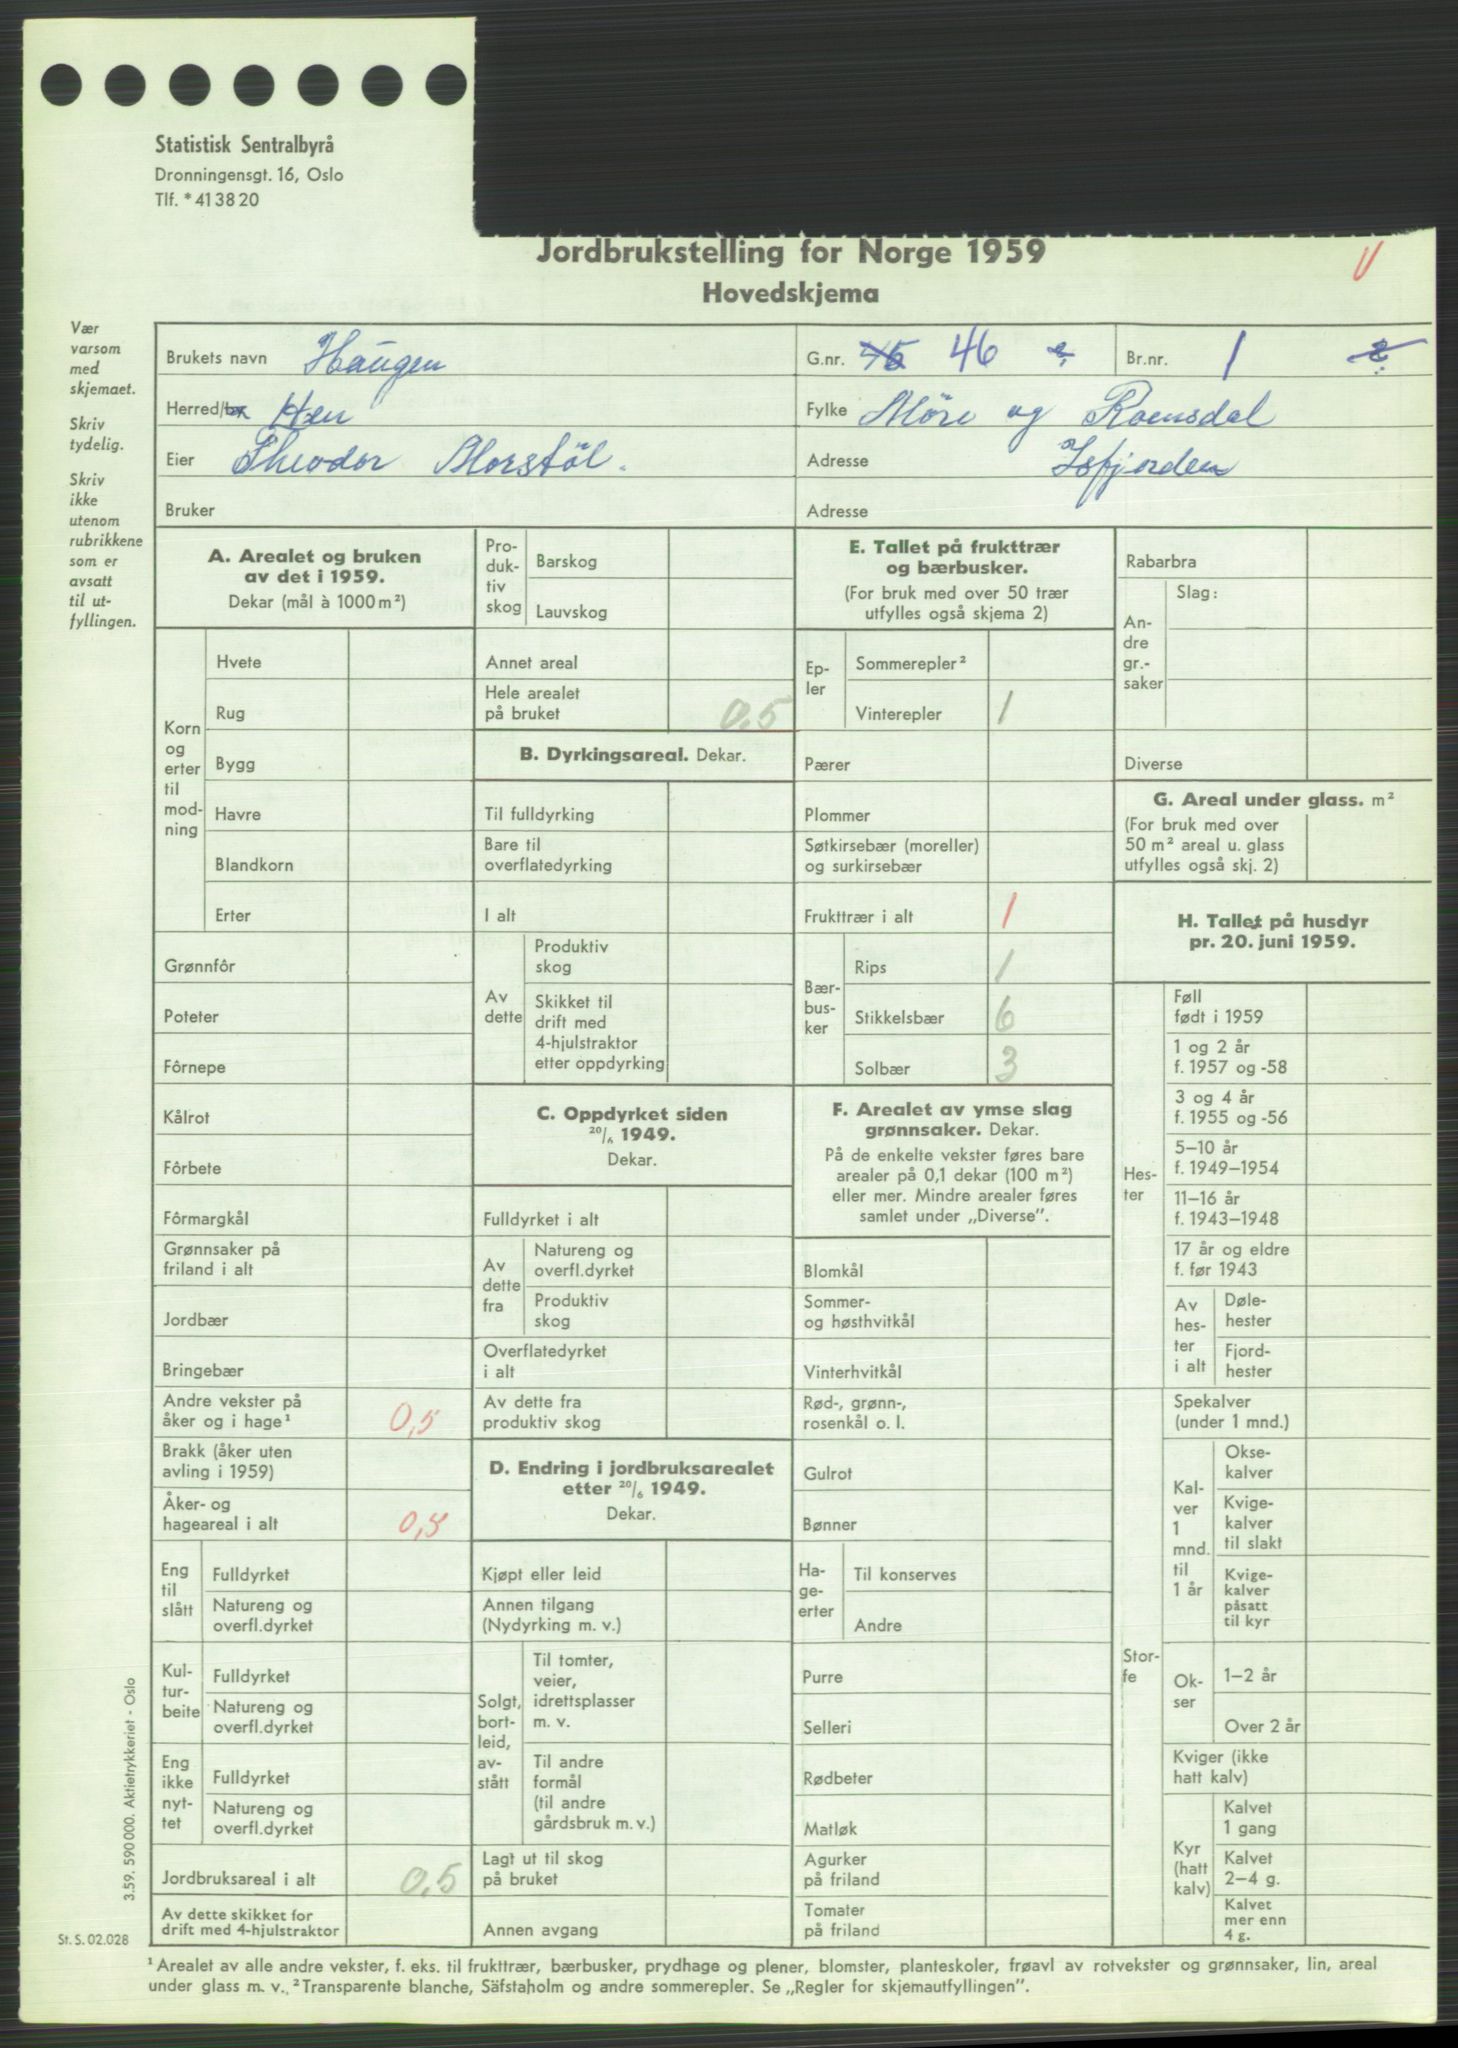 Statistisk Sentralbyrå
Dronningensgt. 16, Oslo
Tlf. * 41 38 20
Jordbrukstelling for Norge 1959
Hovedskjema
Vær
varsom
med
skjemaet.
Skriv
tydelig.
Skriv
ikke
utenom
rubrikkene
som er
avsatt
til ut-
fyllingen.
Brukets navn Haugen
G.nr. 45 46
Br.nr. 1 2
Herred/by Hen
Fylke Møre og Romsdal
Eier Theodor Morstøl.
Adresse Isfjorden
Bruker
Adresse
A. Arealet og bruken
av det i 1959.
Dekar (mål à 1000 m²)
Korn
og
erter
til
mod-
ning
Hvete
Rug
Bygg
Havre
Blandkorn
Erter
Grønnfôr
Poteter
Fôrnepe
Kålrot
Fôrbete
Fôrmargkål
Grønnsaker på
friland i alt
Jordbær
Bringebær
Andre vekster på
åker og i hage¹ 0,5
Brakk (åker uten
avling i 1959)
Åker- og
hageareal i alt 0,5
Eng
til
slått
Fulldyrket
Natureng og
overfl.dyrket
Kul-
tur-
beite
Fulldyrket
Natureng og
overfl.dyrket
Eng
ikke
nyt-
tet
Fulldyrket
Natureng og
overfl.dyrket
Jordbruksareal i alt 0,5
Av dette skikket for
drift med 4-hjulstraktor
Pro-
duk-
tiv
skog
Barskog
Lauvskog
Annet areal
Hele arealet
på bruket 0,5
B. Dyrkingsareal. Dekar.
Til fulldyrking
Bare til
overflatedyrking
I alt
Av
dette
Produktiv
skog
Skikket til
drift med
4-hjulstraktor
etter oppdyrking
C. Oppdyrket siden
20/6 1949.
Dekar.
Fulldyrket i alt
Av
dette
fra
Natureng og
overfl.dyrket
Produktiv
skog
Overflatedyrket
i alt
Av dette fra
produktiv skog
D. Endring i jordbruksarealet
etter 20/6 1949.
Dekar.
Kjøpt eller leid
Annen tilgang
(Nydyrking m. v.)
Solgt,
bort-
leid,
av-
stått
Til tomter,
veier,
idrettsplasser
m. v.
Til andre
formål
(til andre
gårdsbruk m. v.)
Lagt ut til skog
på bruket
Annen avgang
E. Tallet på frukttrær
og bærbusker.
(For bruk med over 50 trær
utfylles også skjema 2)
Ep-
ler
Sommerepler²
Vinterepler 1
Pærer
Plommer
Søtkirsebær (moreller)
og surkirsebær
Frukttrær i alt 1
Bær-
bus-
ker
Rips 1
Stikkelsbær 6
Solbær 3
F. Arealet av ymse slag
grønnsaker. Dekar.
På de enkelte vekster føres bare
arealer på 0,1 dekar (100 m²)
eller mer. Mindre arealer føres
samlet under „Diverse".
Blomkål
Sommer-
og høsthvitkål
Vinterhvitkål
Rød-, grønn-,
rosenkål o. l.
Gulrot
Bønner
Ha-
ge-
erter
Til konserves
Andre
Purre
Selleri
Rødbeter
Matløk
Agurker
på friland
Tomater
på friland
Rabarbra
An-
dre
gr.-
saker
Slag:
Diverse
G. Areal under glass. m²
(For bruk med over
50 m² areal u. glass
utfylles også skj. 2)
H. Tallet på husdyr
pr. 20. juni 1959.
Hes-
ter
Føll
født i 1959
1 og 2 år
f. 1957 og -58
3 og 4 år
f. 1955 og -56
5–10 år
f. 1949–1954
11–16 år
f. 1943–1948
17 år og eldre
f. før 1943
Av
hes-
ter
i alt
Døle-
hester
Fjord-
hester
Stor-
fe
Spekalver
(under 1 mnd.)
Kal-
ver
1
mnd.
til
1 år
Okse-
kalver
Kvige-
kalver
til slakt
Kvige-
kalver
påsatt
til kyr
Ok-
ser
1–2 år
Over 2 år
Kviger (ikke
hatt kalv)
Kyr
(hatt
kalv)
Kalvet
1 gang
Kalvet
2–4 g.
Kalvet
mer enn
4 g.
3.59. 590 000. Aktietrykkeriet - Oslo
St. S. 02.028
¹ Arealet av alle andre vekster, f. eks. til frukttrær, bærbusker, prydhage og plener, blomster, planteskoler, frøavl av rotvekster og grønnsaker, lin, areal
under glass m. v. ² Transparente blanche, Säfstaholm og andre sommerepler. Se „Regler for skjemautfyllingen".